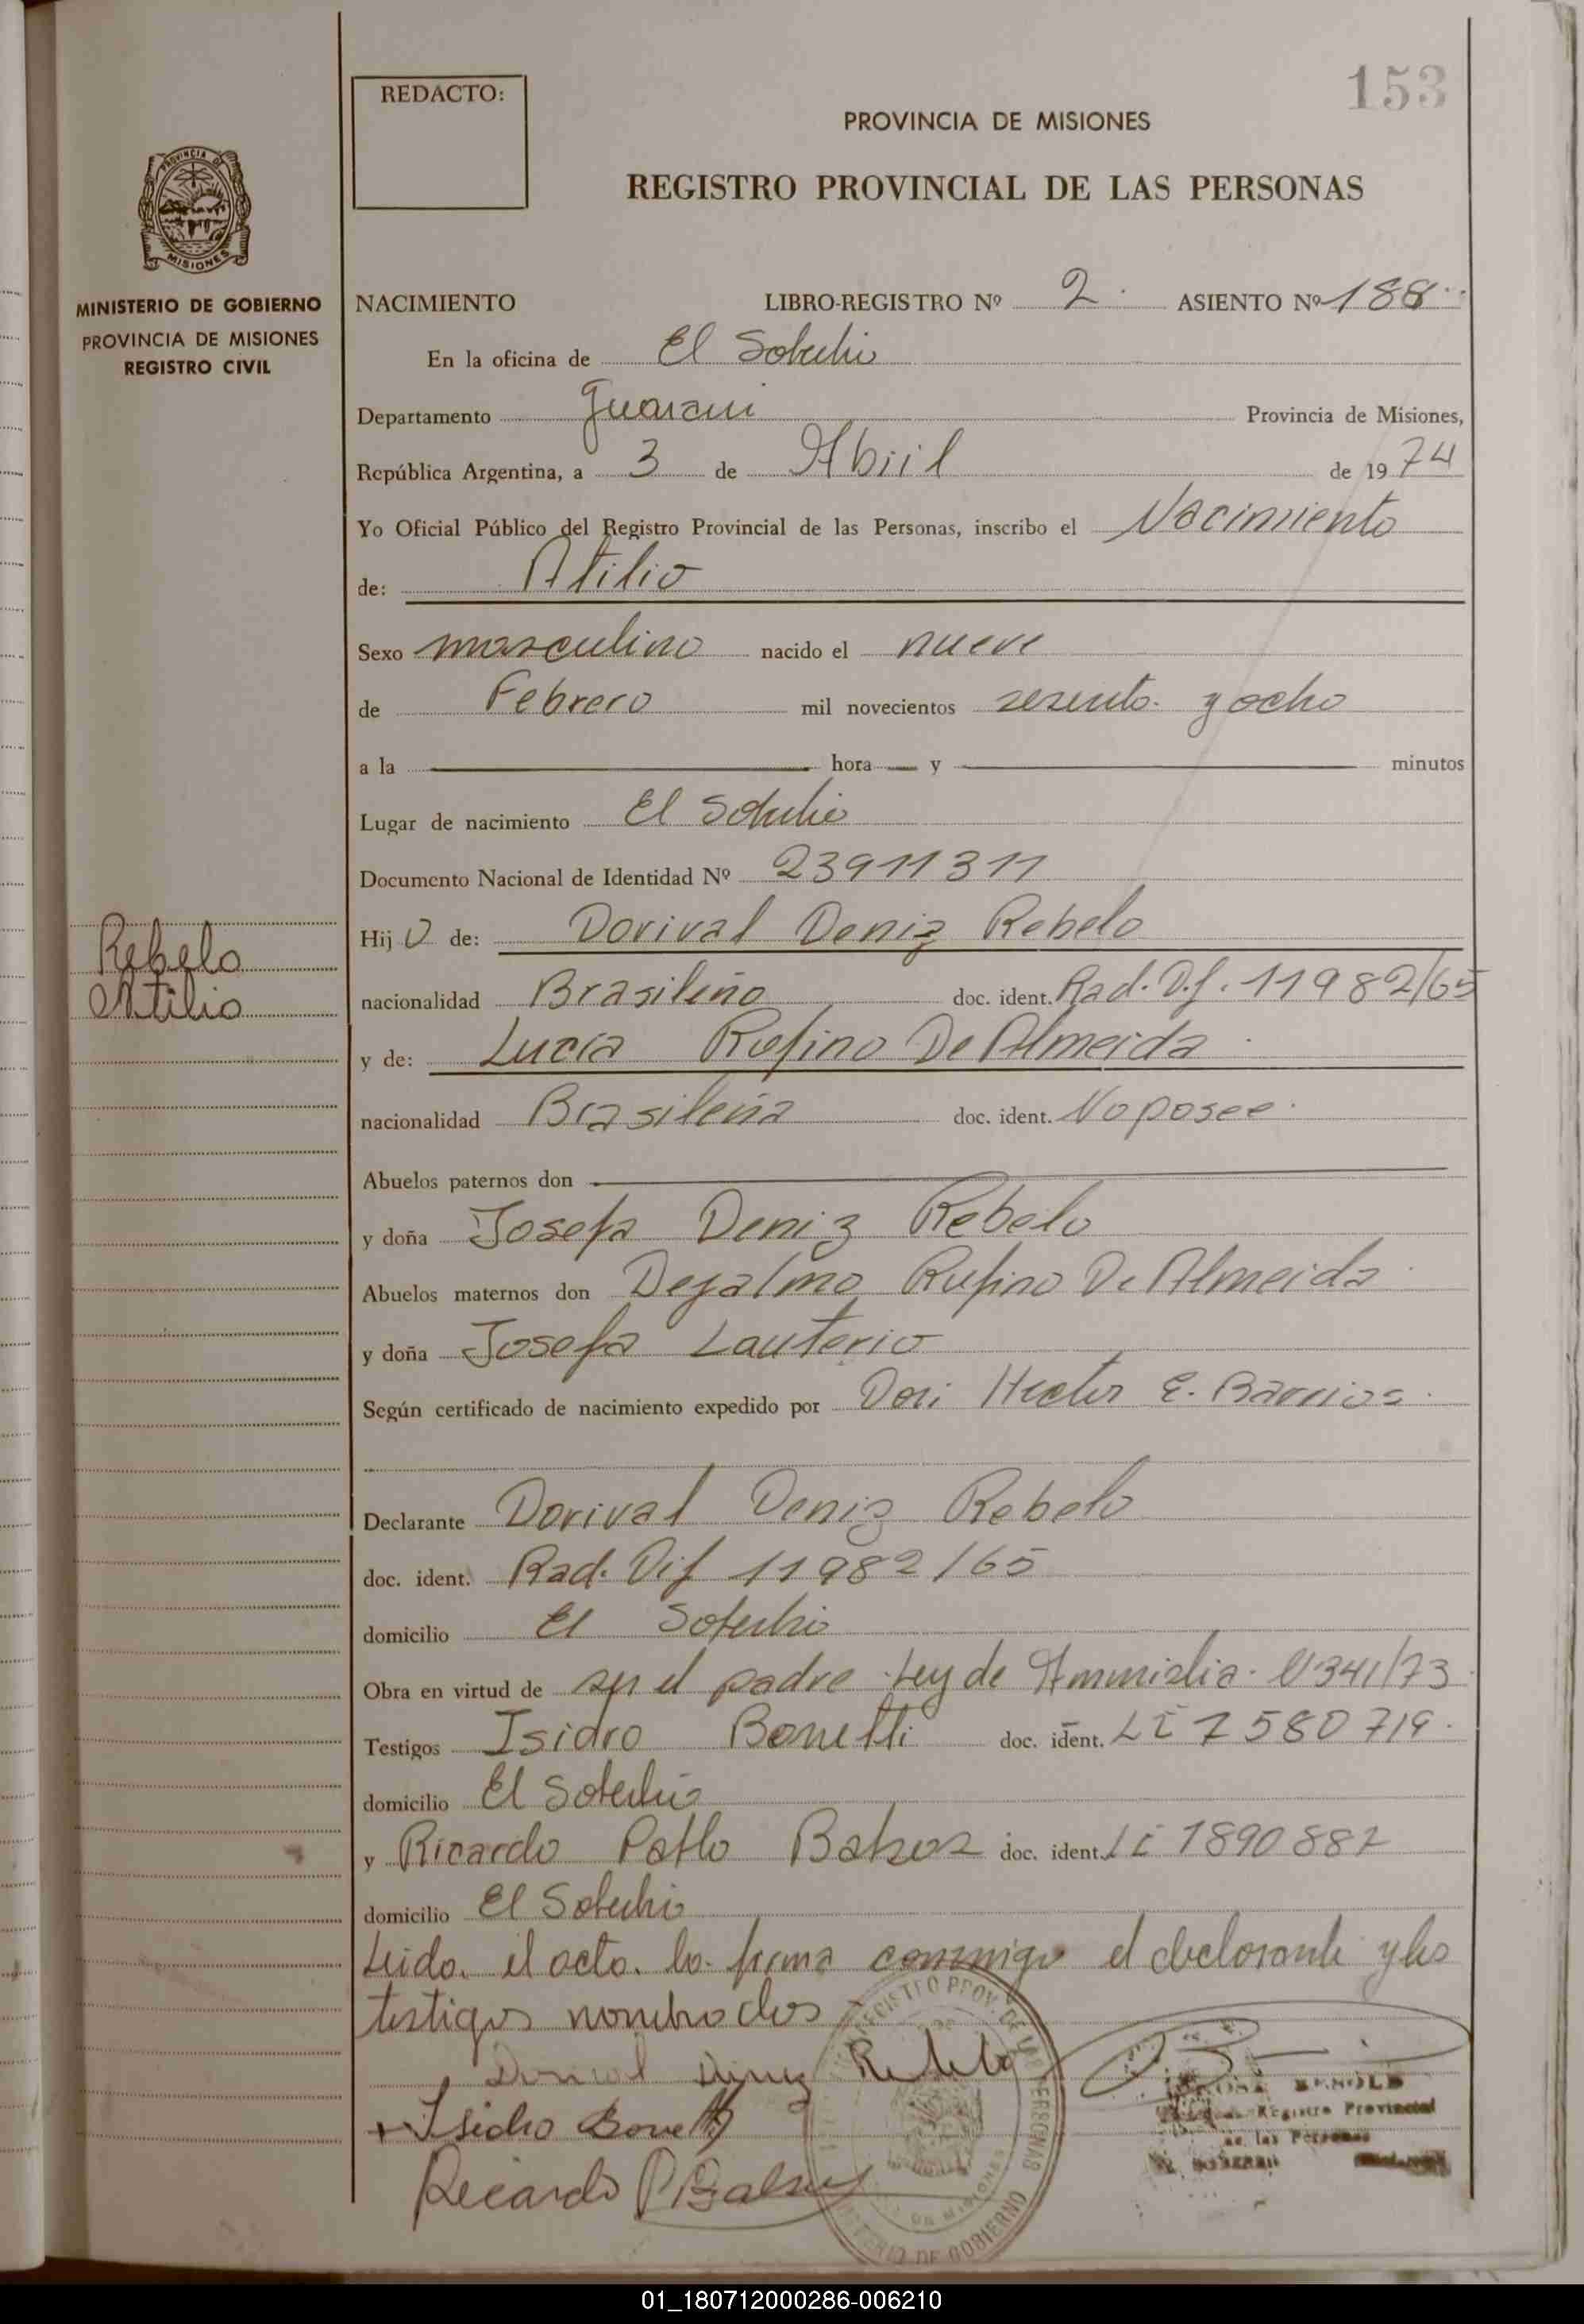 153
REDACTO:
PROVINCIA DE MISIONES
REGISTRO PROVINCIAL DE LAS PERSONAS
PROVINCIA DE
MISIONES
MINISTERIO DE GOBIERNO
PROVINCIA DE MISIONES
REGISTRO CIVIL
NACIMIENTO LIBRO-REGISTRO Nº 2 ASIENTO Nº 188
En la oficina de El Soberbio
Departamento Guarani Provincia de Misiones,
República Argentina, a 3 de Abril de 1974
Yo Oficial Público del Registro Provincial de las Personas, inscribo el Nacimiento
de: Atilio
Sexo masculino nacido el nueve
de Febrero mil novecientos sesenta y ocho
a la hora y minutos
Lugar de nacimiento El Soberbio
Documento Nacional de Identidad Nº 23911311
Hij O de: Dorival Deniz Rebelo
Rebelo
Atilio
nacionalidad Brasileño doc. ident. Rad. D.f. 11982/65
y de: Lucia Rufino De Almeida
nacionalidad Brasileña doc. ident. No posee.
Abuelos paternos don
y doña Josefa Deniz Rebelo
Abuelos maternos don Dejalmo Rufino De Almeida
y doña Josefa Lauterio
Según certificado de nacimiento expedido por Don Hector E. Barrios
Declarante Dorival Deniz Rebelo
doc. ident. Rad. Dif 11982/65
domicilio El Soberbio
Obra en virtud de ser el padre Ley de Ammistia
Testigos Isidro Bonetti doc. ident. LE 7580719
domicilio El Soberbio
y Ricardo Pablo doc. ident. LE 1890887
domicilio El Soberbio
Leida el acta la firma conmigo el declarante y los
testigos nombrados
Dorival Diniz Rebelo
Isidro Bonetti
Ricardo P
REGISTRO PROV. DE LAS PERSONAS
DE MISIONES
MINISTERIO DE GOBIERNO
Registro Provincial
de las Personas
01_180712000286-006210